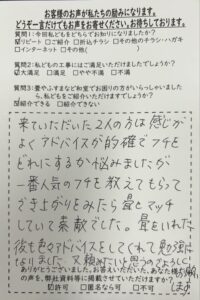 お客様のお声が私たちの励みになります。
どうぞ一言だけでもお声をお寄せください。お待ちしております。
質問1：今回、私どもをどちらでお知りになりましたか？
☑リピート □ご紹介 □折込チラシ □その他のチラシ・ハガキ
□インターネット □その他（ ）
質問2：私どもの工事にはご満足いただけましたでしょうか？
☑大満足 □満足 □やや不満 □不満
質問3：畳やふすまなど和室でお困りの方がいらっしゃいましたら、私どもをご紹介いただけますでしょうか？
☑紹介できる □紹介できない
来ていただいた2人の方は感じが
よくアドバイスが的確でフチを
どれにするか悩みましたが
一番人気のフチを教えてもらって
できあがりをみたら畳とマッチ
していて素敵でした。畳をいれた
後も色々アドバイスをしてくれて勉強に
なりました。又頼みたいと思うのでよろしく
お願い
します
ありがとうございました。お答えいただいた、あなた様の
声を、弊社資料等に掲載させていただけますか？
☑許可 □匿名なら可 □不可